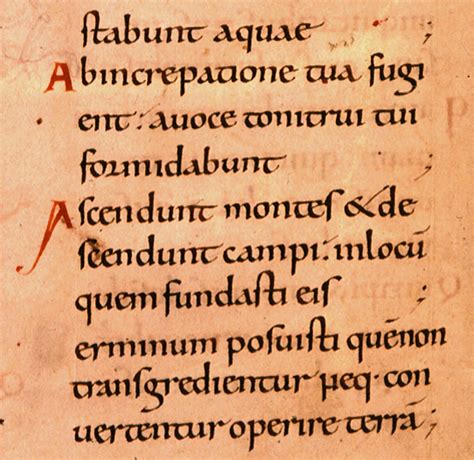 stabunt aquae ;
Abincrepatione tua fugi
ent: avoce tonitrui tui
formidabunt
Ascendunt montes & de
scendunt campi: inlocū
quem fundasti eis ;
erminum posuisti quēnon
transgredientur neq· con
vertentur operire terrā ;